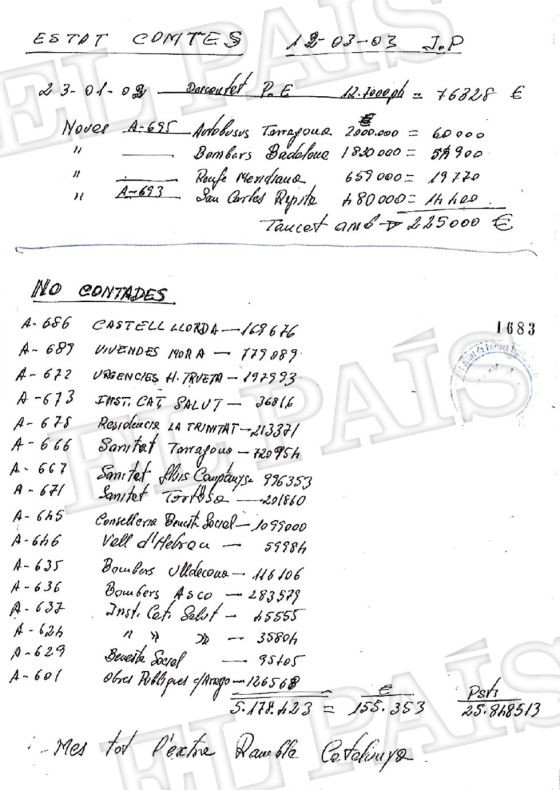 ESTAT COMTES 12-03-03 J.P
23-01-02 Descontat P.E 12.700.000 pts = 76328 €
€
Noves A-695 Autobusus Tarragona 2000.000 = 60000
" — Bombers Badalona 1830000 = 54900
" — Renfe Meridiana 659000 = 19770
" A-693 San Carles Rapita 480000 = 14400
Tancat amb → 225000 €
NO CONTADES
1683
A-686 CASTELL LLORDA — 168676
A-689 VIVENDES MORA — 779089
A-672 URGENCIES H. TRUETA — 197993
A-673 INST. CAT. SALUT — 36816
A-678 Residencia LA TRINITAT — 213371
A-666 Sanitat Tarragona — 720954
A-667 Sanitat Lluis Companys — 996353
A-671 Sanitat Tortosa — 201860
A-645 Conselleria Benesta Social — 1099000
A-646 Vall d'Hebron — 59984
A-635 Bombers Ulldecona — 116106
A-636 Bombers ASCO — 283579
A-637 Inst. Cat. Salut — 45555
A-624 " " " — 35804
A-629 Benesta Social — 95705
A-601 Obres Publiques c/Arago — 126568
€ Pts
5.178.423 = 155.353 25.848513
Mes tot l'extra Rambla Catalunya
EL PAÍS
EL PAÍS
EL PAÍS